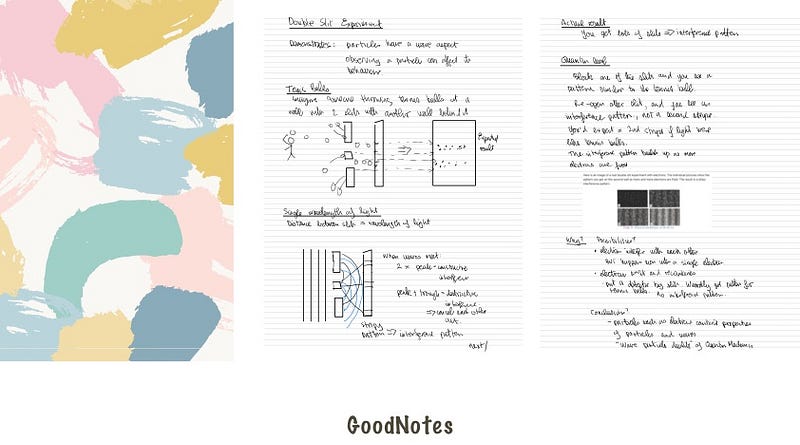 Double Slit Experiment
Demonstrates: particles have a wave aspect
observing a particle can affect its
behaviour
Tennis balls
Imagine someone throwing tennis balls at a
wall with 2 slits with another wall behind it
Expected
result
Single wavelength of light
Distance between slits = wavelength of light
When waves meet:
2 x peaks = constructive
interference
peak + trough = destructive
interference
=> cancel each other
out
Stripy
pattern => interference pattern
next/
Actual result
You get lots of slits => interference pattern
Quantum level
Block one of the slits and you see a
pattern similar to the tennis ball.
Re-open other slit, and you see an
interference pattern, not a second stripe.
You'd expect a 2nd stripe of light were
like tennis balls.
The interference pattern builds up as more
electrons are fired
Here is an image of a real double slit experiment with electrons. The individual pictures show the
pattern you get on the second wall as more and more electrons are fired. The result is a stripy
interference pattern.
Why? Possibilities?
• electrons interfere with each other
but happens even with a single electron
• electrons split and recombine
put a detector by slits.
tennis balls. No interference pattern.
Conclusion?
- particles such as electrons contain properties
of particles and waves
- "Wave particle duality" of Quantum Mechanics
GoodNotes